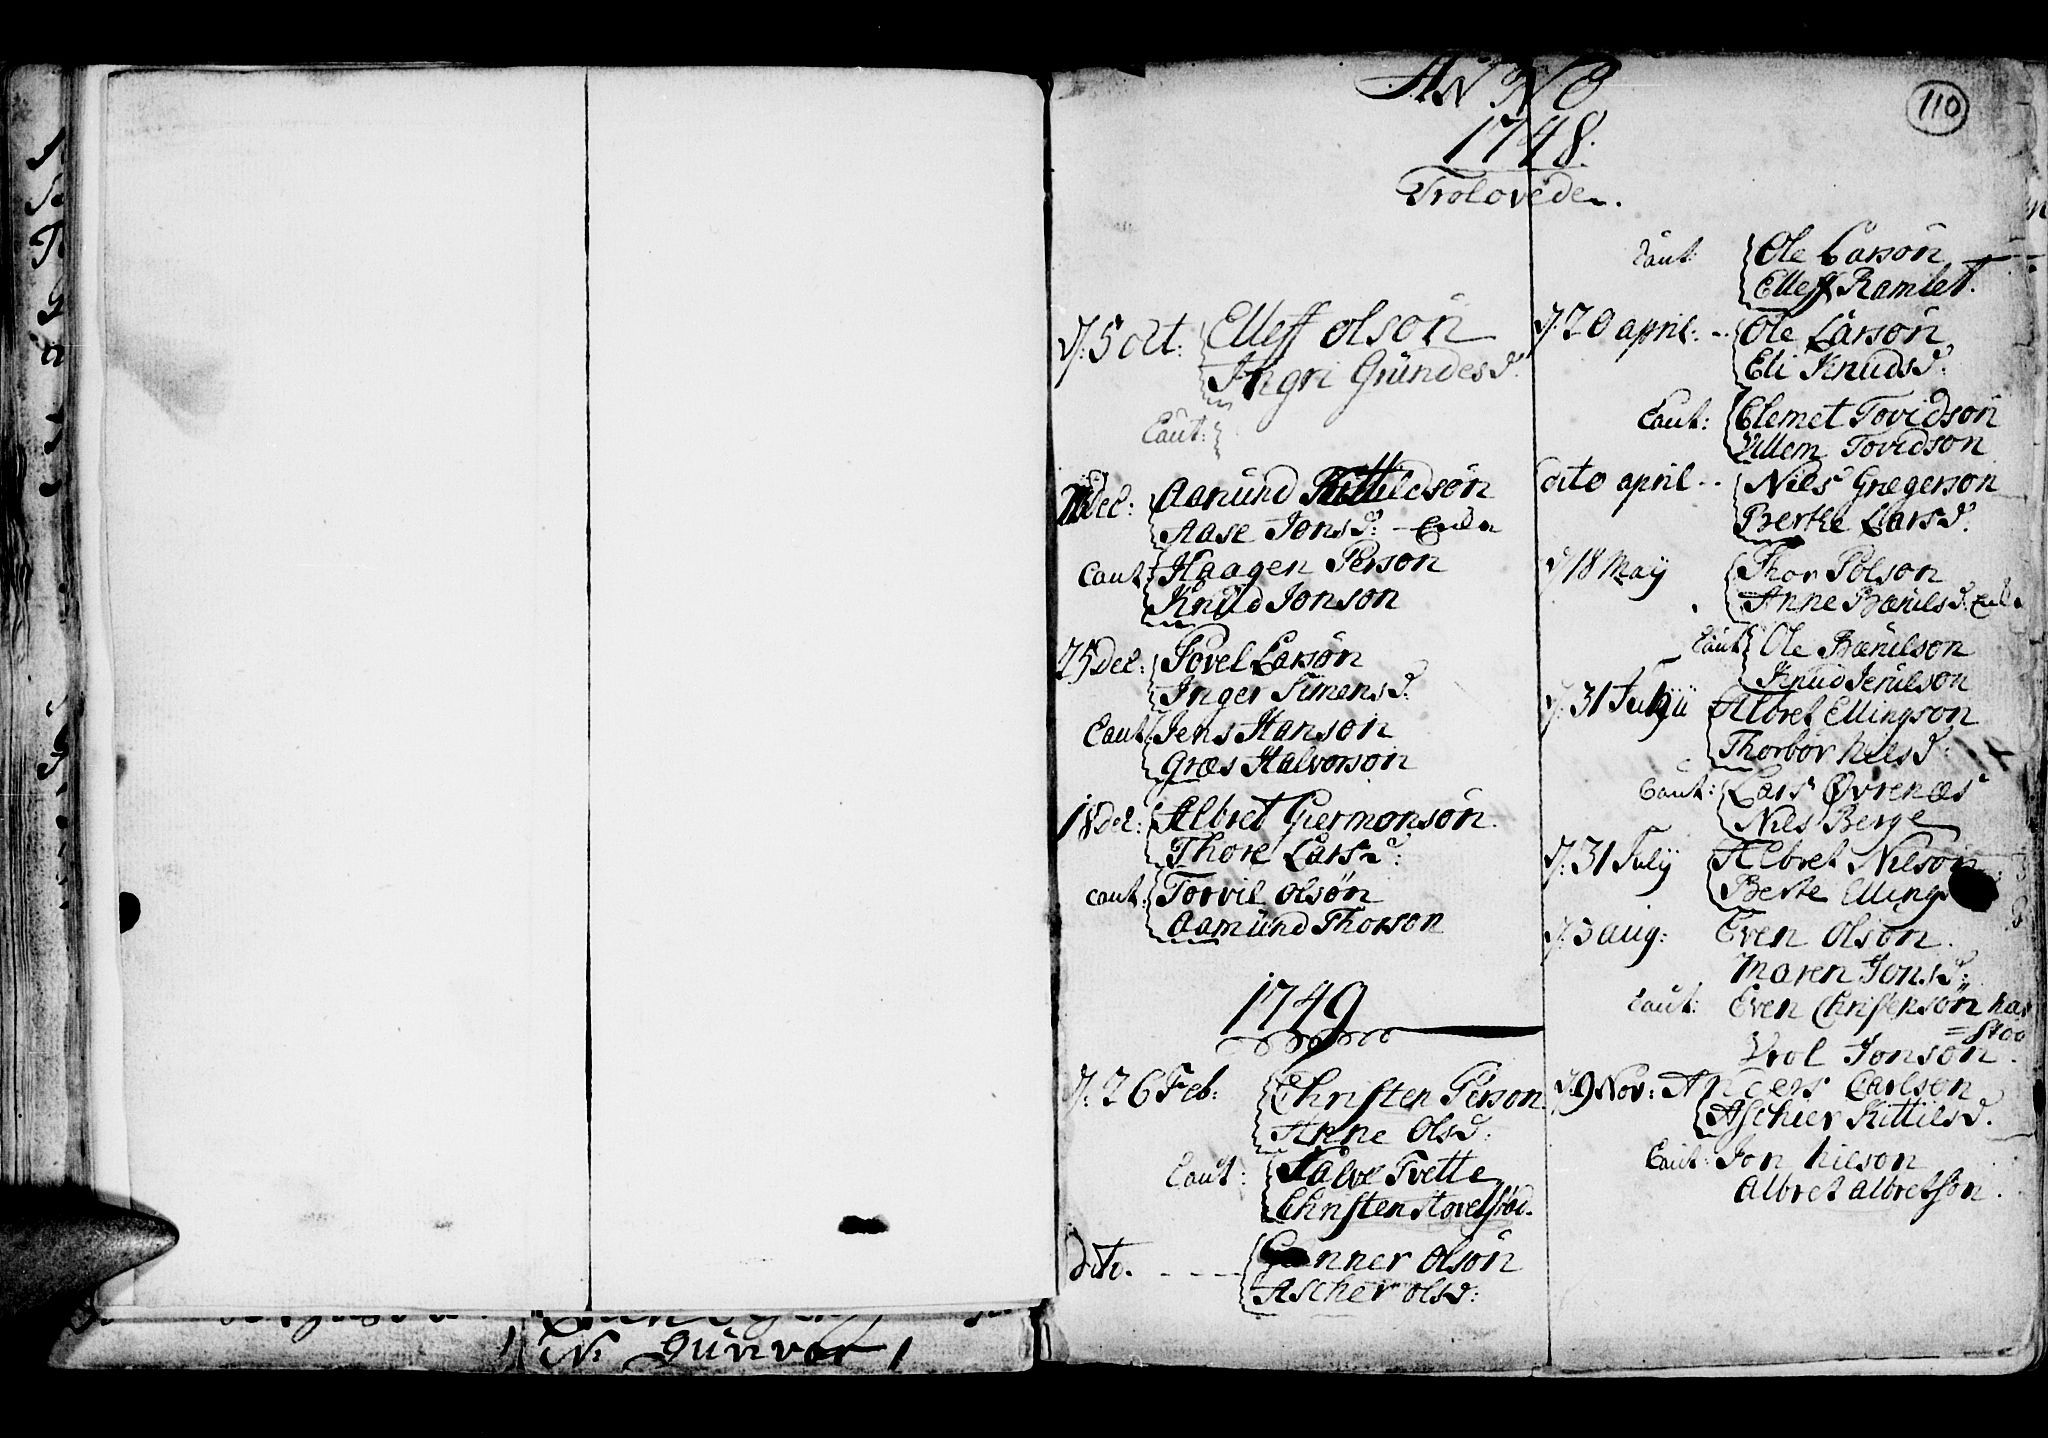 110
ANNO
1748.
Troloveden.
d: 5 oct: Elleff olsön
Ingri Gündesd:
Caut:
Dec: Aamünd Kittildsön
Aase Jonsd: - Enke
Caut: Haagen Person
Knüd Jonson
25 Dec: Povel Larsön
Inger Simensd:
Caut: Jens Hanson
Græs Halvorsön
18 Dec: Albret Giermonsön.
Thore Larsd:
Caut: Torvil Olsön
Aamünd Thorson
1749
d: 26 Feb: Christen Pérson
Anne Olsd:
Caut: Salve Tvette
Christen Hovelstöd.
dito. - - - Gunner Olsön
Ascher olsd:
Caut: Ole Carsön
Elleff Ramlet.
d: 20 april: -- Ole Larsön
Eli Knudsd:
Caut: Clemet Tovidsön
Villem Tovidson
dito april - - Nils Gregerson
Berthe Larsd:
d 18 May Thor Polson
Anne Bærulsd: Enke
Caut Ole Bærulson
Knud Jerulson
d. 31 July Albret Ellingson
Thorbor Nilsd:
Caut: Lars Øvrenæs
Nils Berge
d: 31 July Albret Nilsön
Berte Ellings
d. 3 aug: Even Olson.
Maren Jonsd:
Caut: Even Christensön har
=stad
Vrol Jonsön.
d. 9 Nov: Anders Carlsen
Aschier Kittilsd.
Caut: Jon Nilson
Albret albretsön.
N: Günvor